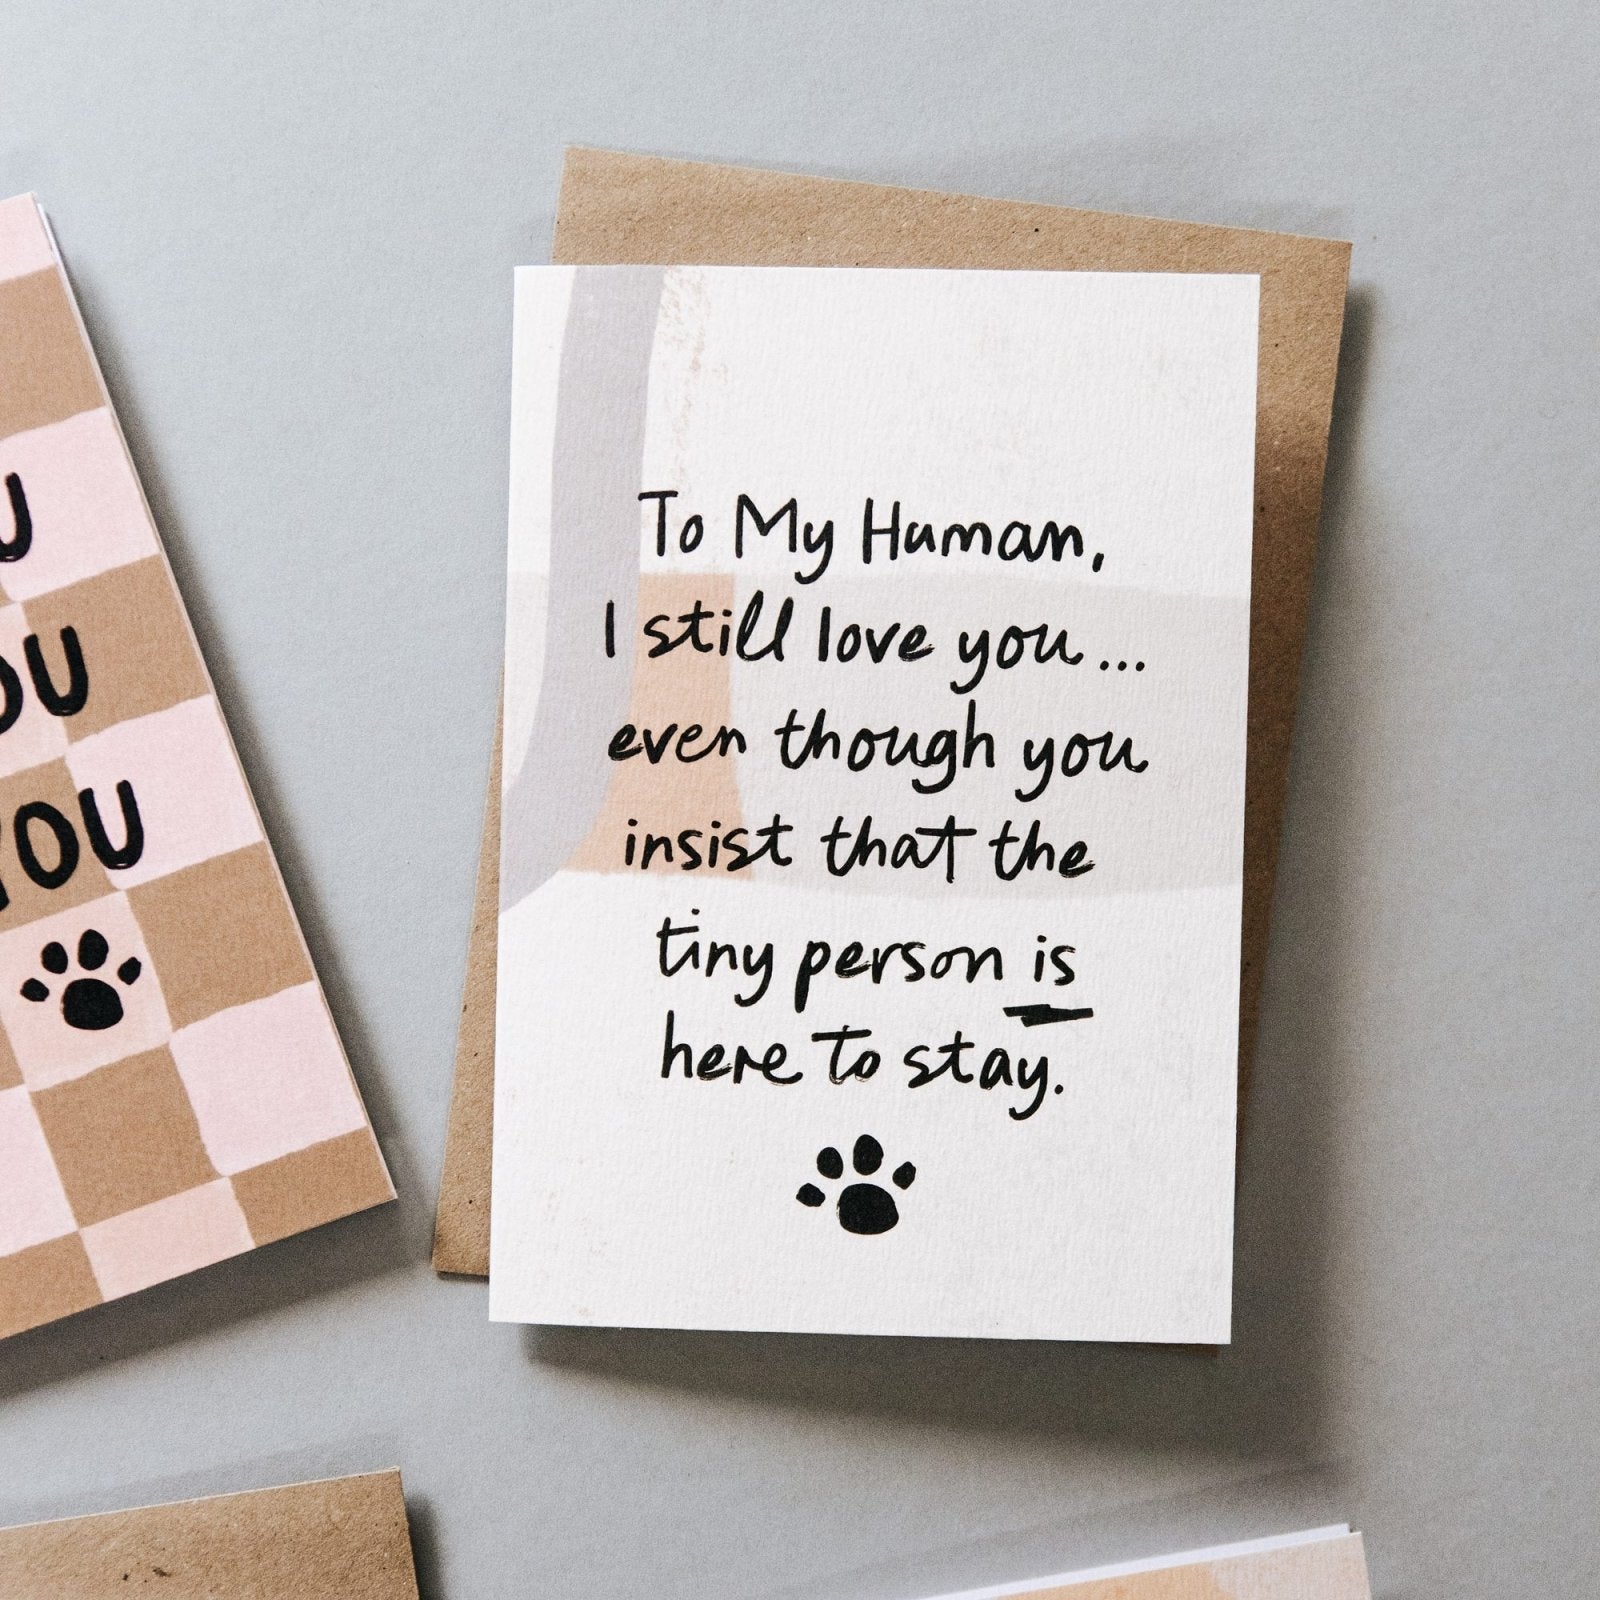 To My Human,
I still love you...
even though you
insist that the
tiny person is
here to stay.
OU
YOU